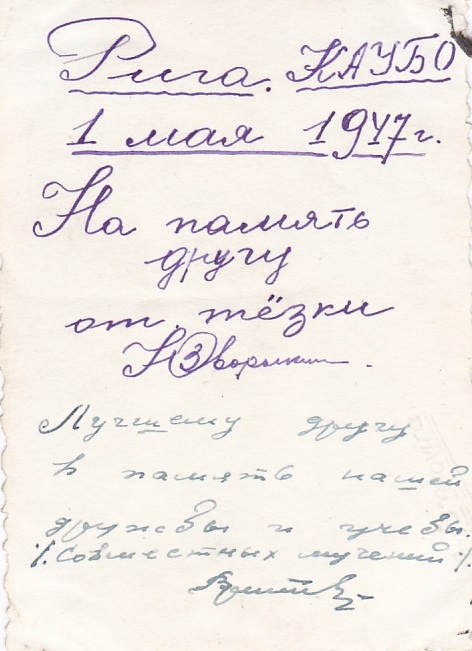 Рига. КАУБО
1 мая 1947 г.
На память
другу
от тёзки
Лучшему другу
в память нашей
дружбы и учебы.
/. совместных мучений ./.